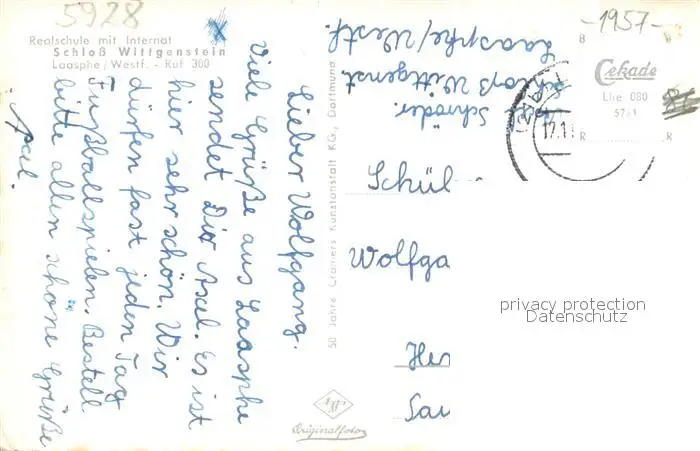 5928
-1957-
Realschule mit Internat
Schloß Wittgenstein
Laasphe/Westf. - Ruf 300
Lieber Wolfgang.
Viele Grüße aus Laasphe
sendet Dir Axel. Es ist
hier sehr schön. Wir
dürfen fast jeden Tag
Fußballspielen. Bestell
bitte allen schöne Grüße
Axel.
50 Jahre Cramers Kunstanstalt KG., Dortmund
Schröder.
Schloß Wittgenst.
Laasphe/Westf.
B B
Cekade
Lhe 080
57
R R
12.1
Schül
Wolfga
Her
Sau
privacy protection
Datenschutz
Agfa
Originalfoto